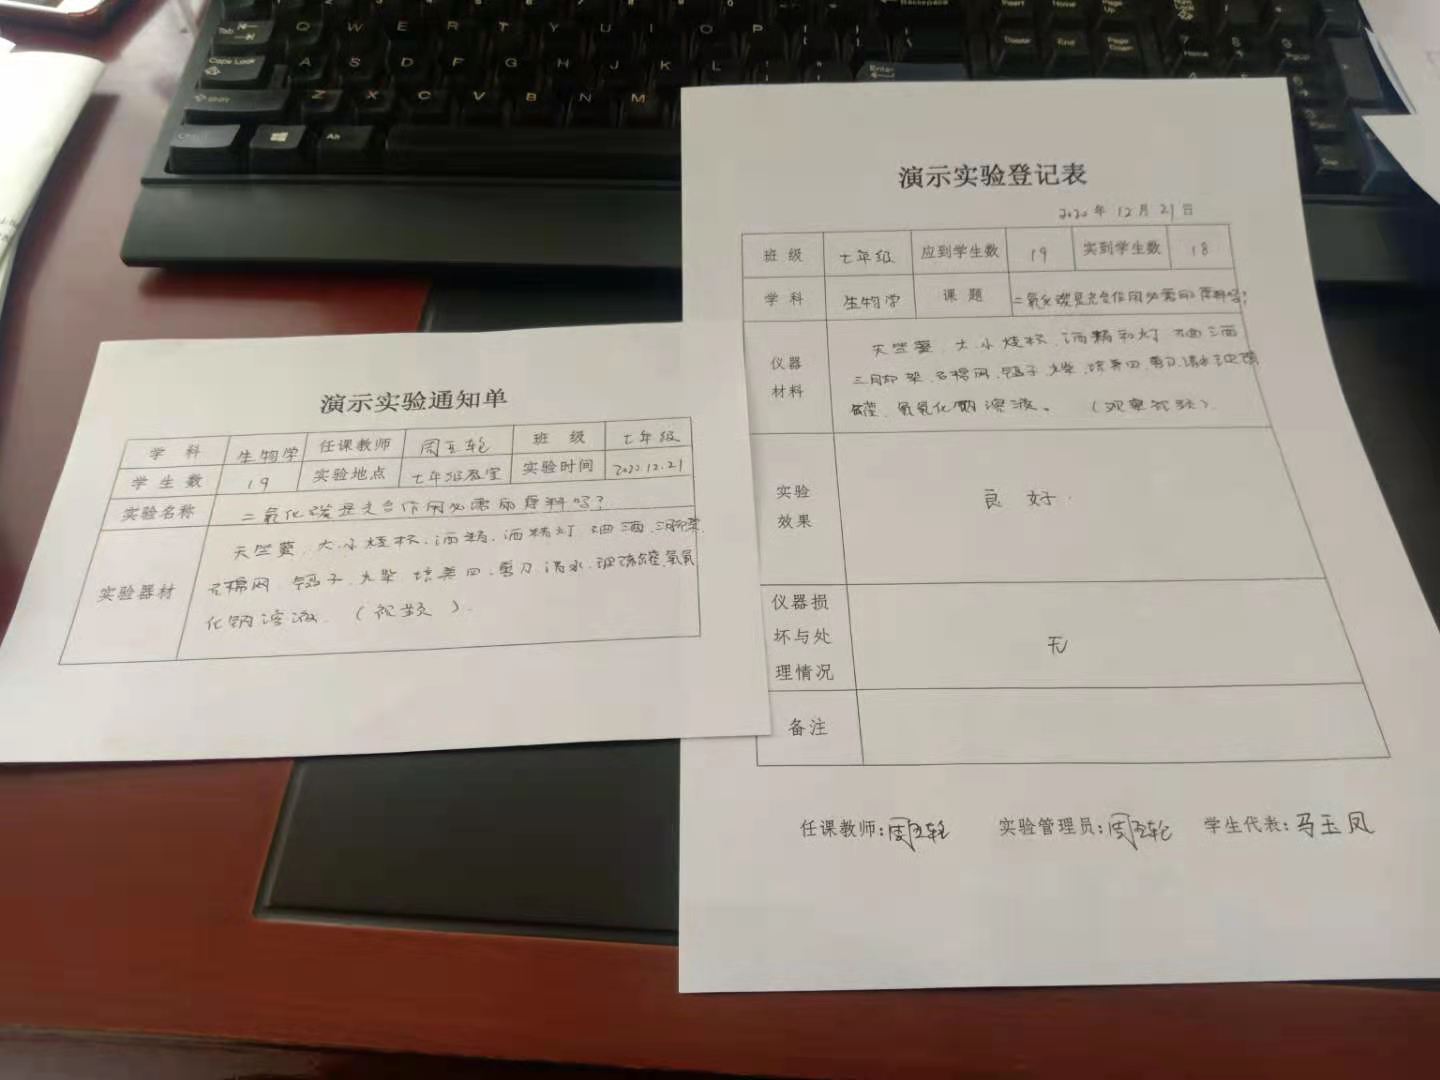 演示实验通知单
学 科 生物学 任课教师 周五轮 班 级 七年级
学生数 19 实验地点 七年级教室 实验时间 2020.12.21
实验名称 二氧化碳是光合作用必需的原料吗?
实验器材 天竺葵、大小烧杯、酒精、酒精灯、碘酒、三脚架、
石棉网、镊子、火柴、培养皿、剪刀、清水、玻璃罐、氢氧
化钠溶液. (视频).
演示实验登记表
2020年 12月 21日
班 级 七年级 应到学生数 19 实到学生数 18
学 科 生物学 课 题 二氧化碳是光合作用必需的原料吗?
仪器材料 天竺葵、大小烧杯、酒精和灯、碘酒
三脚架、石棉网、镊子、火柴、培养皿、剪刀、清水、玻璃
罐、氢氧化钠溶液。 (观察视频).
实验效果 良 好.
仪器损坏与处理情况 无
备注
任课教师:周五轮 实验管理员:周五轮 学生代表:马玉凤
Tab Q W E R T Y U I O P
Caps Lock A S D F G H J K L
Shift Z X C V B N M
Alt
Backspace
Enter
Insert Home Page Up
Delete End Page Down